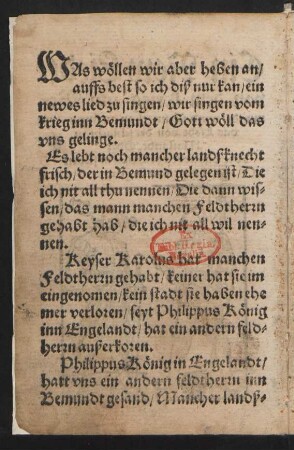 WAs wöllen wir aber heben an/
auffs best so ich diß nur kan/ ein
newes lied zu singen/ wir singen vom
krieg inn Bemundt/ Gott wöll das
vns gelinge.
Es lebt noch mancher landsknecht
frisch/ der in Bemund gelegen ist/ Die
ich nit all thu nennen/ Die dann wis-
sen/ das mann manchen Feldtherrn
gehabt hab/ die ich nit all wil nen-
nen.
Keyser Karolus hat manchen
Feldtherrn gehabt/ keiner hat sie im
eingenomen/ kein stadt sie haben ehe
mer verloren/ seyt Philippus König
inn Engelandt/ hat ein andern feld-
herrn außerkoren.
Philippus König in Engelandt/
hatt vns ein andern feldtherrn inn
Bemundt gesand/ Mancher landß-